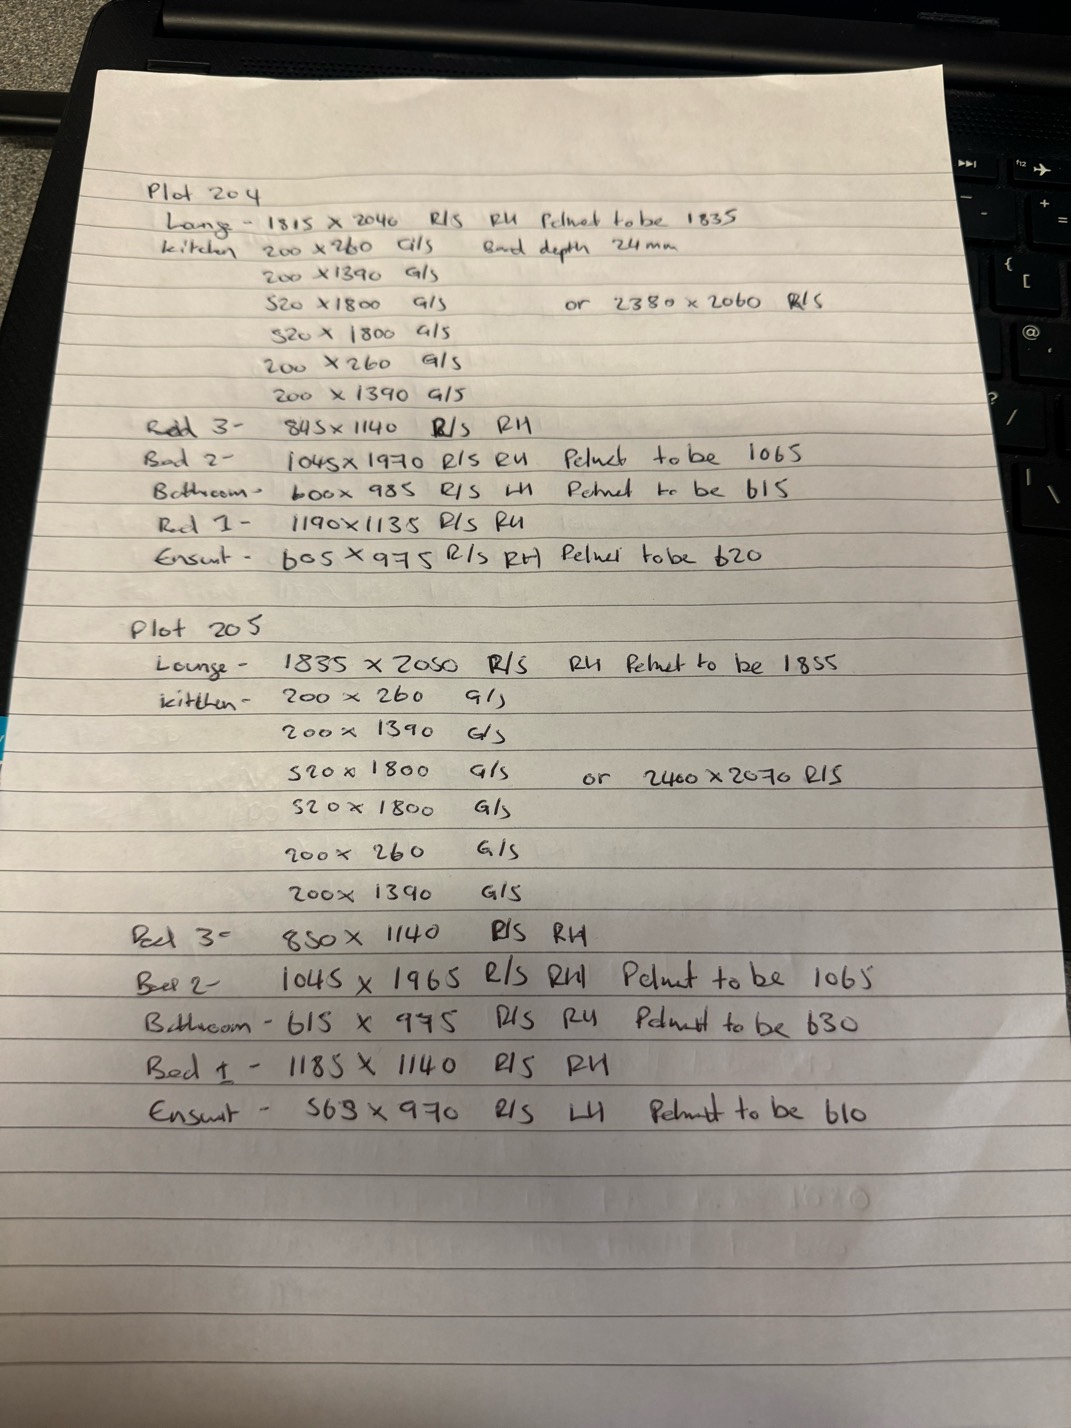 Plot 204
Lounge - 1815 x 2040 R/S RH Pelmet to be 1835
Kitchen 200 x 260 G/S Bead depth 24mm
200 x 1390 G/S
520 x 1800 G/S or 2380 x 2060 R/S
520 x 1800 G/S
200 x 260 G/S
200 x 1390 G/S
Bed 3- 845 x 1140 R/S RH
Bed 2- 1045 x 1970 R/S RH Pelmet to be 1065
Bathroom- 600 x 985 R/S LH Pelmet to be 615
Bed 1- 1190 x 1135 R/S RH
Ensuit - 605 x 975 R/S RH Pelmet to be 620
Plot 205
Lounge - 1835 x 2050 R/S RH Pelmet to be 1855
kitchen - 200 x 260 G/S
200 x 1390 G/S
520 x 1800 G/S or 2400 x 2070 R/S
520 x 1800 G/S
200 x 260 G/S
200 x 1390 G/S
Bed 3- 850 x 1140 R/S RH
Bed 2- 1045 x 1965 R/S RH Pelmet to be 1065
Bathroom - 615 x 975 R/S RH Pelmet to be 630
Bed 1 - 1185 x 1140 R/S RH
Ensuit - x 970 R/S LH Pelmet to be 610